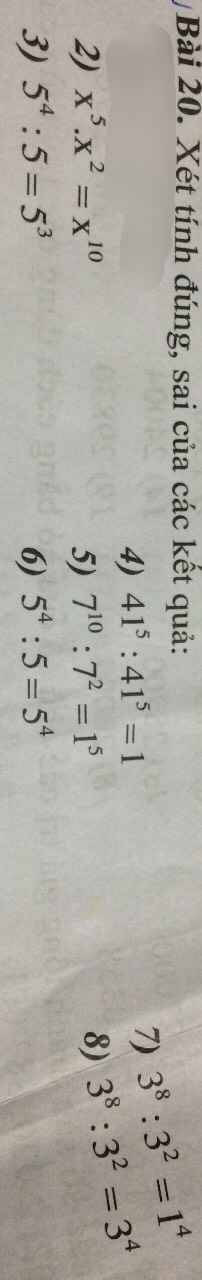 Bài 20. Xét tính đúng, sai của các kết quả:
2) x⁵.x² = x¹⁰
3) 5⁴ : 5 = 5³
4) 41⁵ : 41⁵ = 1
5) 7¹⁰ : 7² = 1⁵
6) 5⁴ : 5 = 5⁴
7) 3⁸ : 3² = 1⁴
8) 3⁸ : 3² = 3⁴